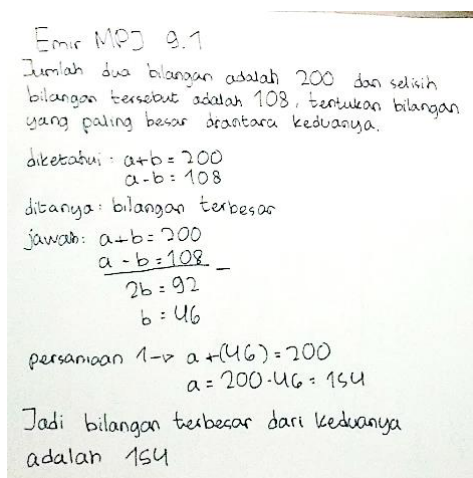 Emir MPJ 9.1
Jumlah dua bilangan adalah 200 dan selisih
bilangan tersebut adalah 108, tentukan bilangan
yang paling besar diantara keduanya.
diketahui : a+b = 200
a-b = 108
ditanya : bilangan terbesar
jawab: a+b = 200
a - b = 108 -
2b = 92
b = 46
persamaan 1-> a +(46) = 200
a = 200-46 = 154
Jadi bilangan terbesar dari keduanya
adalah 154